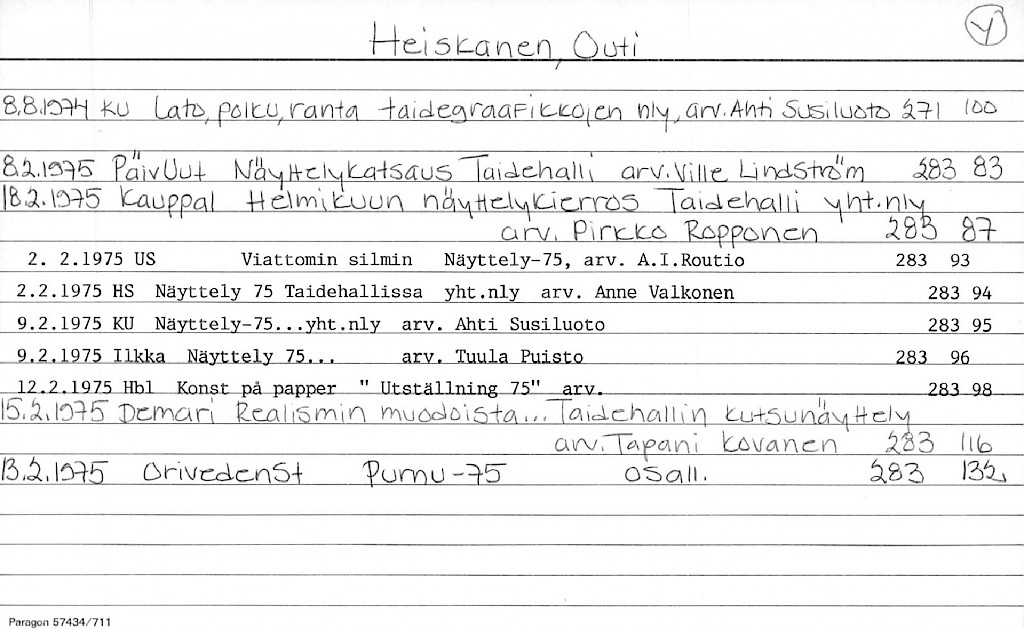 Heiskanen, Outi
Y
8.8.1974 KU Lato, polku, ranta taidegraafikkojen nly, arv. Ahti Susiluoto 271 100
8.2.1975 PäivUut Näyttelykatsaus Taidehalli arv. Ville Lindström 283 83
18.2.1975 Kauppal Helmikuun näyttelykierros Taidehalli yht.nly
arv. Pirkko Ropponen 283 87
2. 2.1975 US Viattomin silmin Näyttely-75, arv. A.I.Routio 283 93
2.2.1975 HS Näyttely 75 Taidehallissa yht.nly arv. Anne Valkonen 283 94
9.2.1975 KU Näyttely-75...yht.nly arv. Ahti Susiluoto 283 95
9.2.1975 Ilkka Näyttely 75... arv. Tuula Puisto 283 96
12.2.1975 Hbl Konst på papper " Utställning 75" arv. 283 98
15.2.1975 Demari Realismin muodoista... Taidehallin kutsunäyttely
arv. Tapani Kovanen 283 116
13.2.1975 OrivedenSt Purnu-75 osall. 283 132
Paragon 57434/711